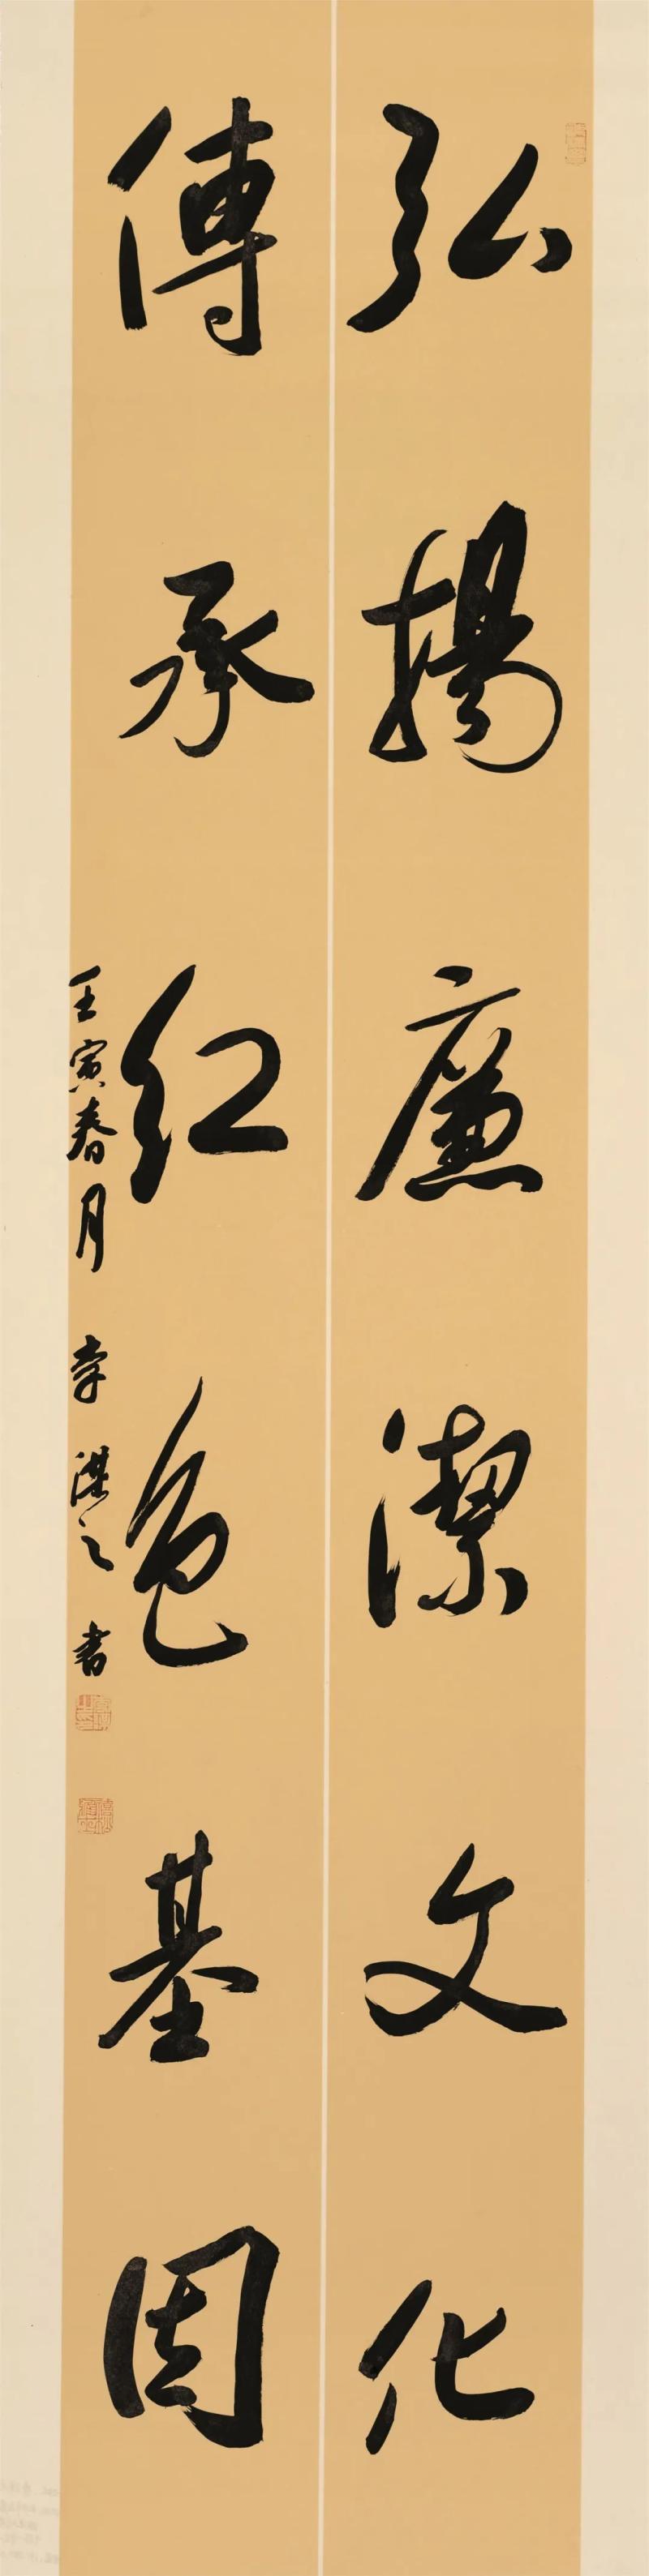 弘揚廉潔文化
傳承紅色基因
壬寅春月 李 之 書